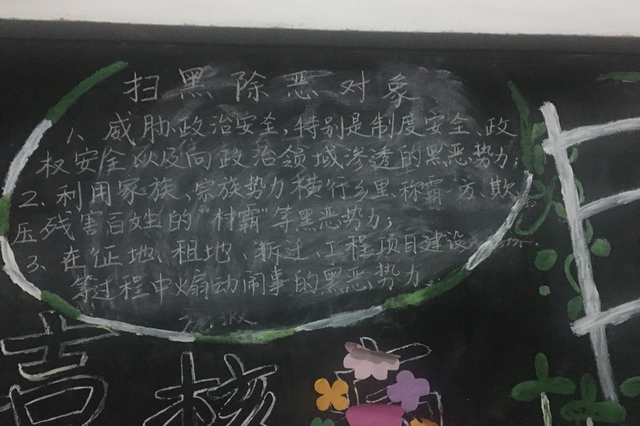 扫黑除恶对象
1、威胁政治安全,特别是制度安全、政
权安全以及向政治领域渗透的黑恶势力;
2、利用家族、宗族势力横行乡里、称霸一方、欺
压残害百姓的“村霸”等黑恶势力;
3、在征地、租地、拆迁、工程项目建设
等过程中煽动闹事的黑恶势力